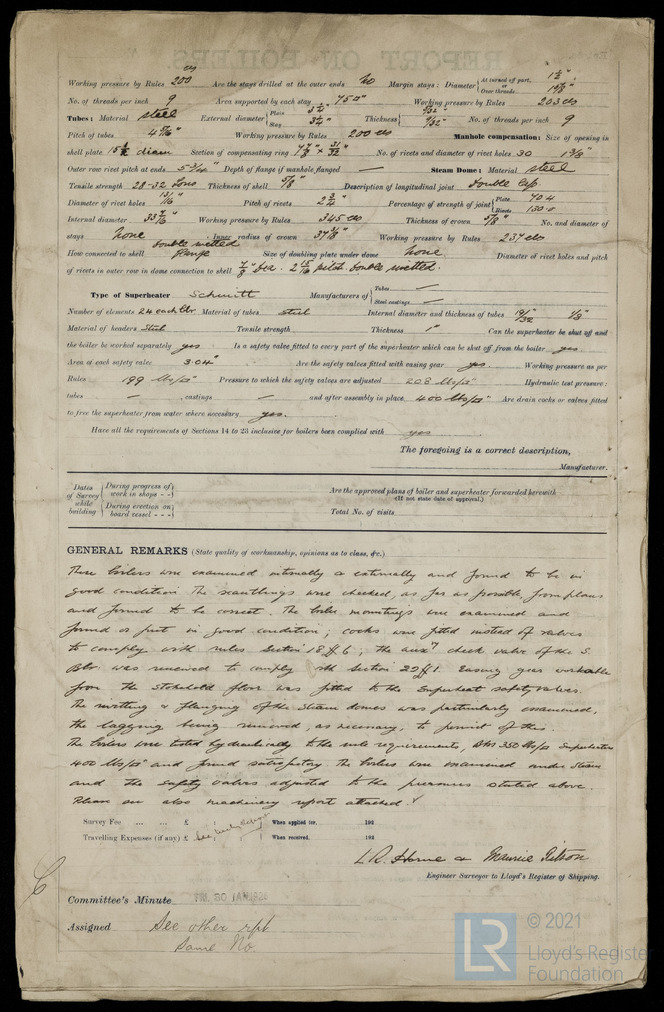 Working pressure by Rules 200 Are the stays drilled at the outer ends No Margin stays: Diameter { At turned off part, 1½" Over threads 1⅝"
No. of threads per inch 9 Area supported by each stay 75□" Working pressure by Rules 203
Tubes: Material Steel External diameter { Plain 3¼" Stay 3¼" Thickness { 9/32" No. of threads per inch 9
Pitch of tubes 4 Working pressure by Rules 200 Manhole compensation: Size of opening in
shell plate 15 diam Section of compensating ring No. of rivets and diameter of rivet holes 30 1⅜"
Outer row rivet pitch at ends 5-3/4" Depth of flange if manhole flanged — Steam Dome: Material Steel
Tensile strength 28-32 Tons Thickness of shell ⅝" Description of longitudinal joint Double lap.
Diameter of rivet holes 13/16" Pitch of rivets 2¾" Percentage of strength of joint { Plate 70.4 Rivets 130.0
Internal diameter 33 Working pressure by Rules 345 Thickness of crown ⅝" No. and diameter of
stays None Inner radius of crown 37 Working pressure by Rules 237
How connected to shell double rivetted flange Size of doubling plate under dome None Diameter of rivet holes and pitch
of rivets in outer row in dome connection to shell ⅞" dia. 2 15/16 pitch double rivetted.
Type of Superheater Schmitt Manufacturers of { Tubes — Steel castings —
Number of elements 24 each Blr Material of tubes Steel Internal diameter and thickness of tubes 19/32 ⅛"
Material of headers Steel Tensile strength Thickness 1" Can the superheater be shut off and
the boiler be worked separately yes Is a safety valve fitted to every part of the superheater which can be shut off from the boiler yes
Area of each safety valve 3.04" Are the safety valves fitted with easing gear yes. Working pressure as per
Rules 199 lbs/□" Pressure to which the safety valves are adjusted 208 lbs/□" Hydraulic test pressure:
tubes — castings — and after assembly in place 400 lbs/□" Are drain cocks or valves fitted
to free the superheater from water where necessary yes.
Have all the requirements of Sections 14 to 23 inclusive for boilers been complied with yes
The foregoing is a correct description,
Manufacturer.
Dates of Survey while building { During progress of work in shops - - } Are the approved plans of boiler and superheater forwarded herewith (If not state date of approval.)
{ During erection on board vessel - - - } Total No. of visits
GENERAL REMARKS (State quality of workmanship, opinions as to class, &c.)
These boilers were examined internally & externally and found to be in
good condition The scantlings were checked, as far as possible, from plans
and found to be correct. The boiler mountings were examined and
found or put in good condition; cocks were fitted instead of valves
to comply with rules Section 18 ff 6; the aux^y check valve of the S.
Blr. was renewed to comply with section 20 ff 1. Easing gear workable
from the Stokehold floor was fitted to the Superheat safety valves.
The rivetting & flanging of the Steam domes was particularly examined,
the lagging being removed, as necessary, to permit of this.
The boilers were tested hydraulically to the rule requirements, Blrs 350 lbs/□ Superheaters
400 lbs/□" and found satisfactory. The boilers were examined under steam
and the safety valves adjusted to the pressures stated above.
Please see also machinery report attached.
Survey Fee ... ... £ : : When applied for, 192
Travelling Expenses (if any) £ : : When received, 192
L.R. Horne & Maurice
Engineer Surveyor to Lloyd's Register of Shipping.
Committee's Minute 30 JAN
Assigned See other rpt
Same No.
LR © 2021
Lloyd's Register
Foundation